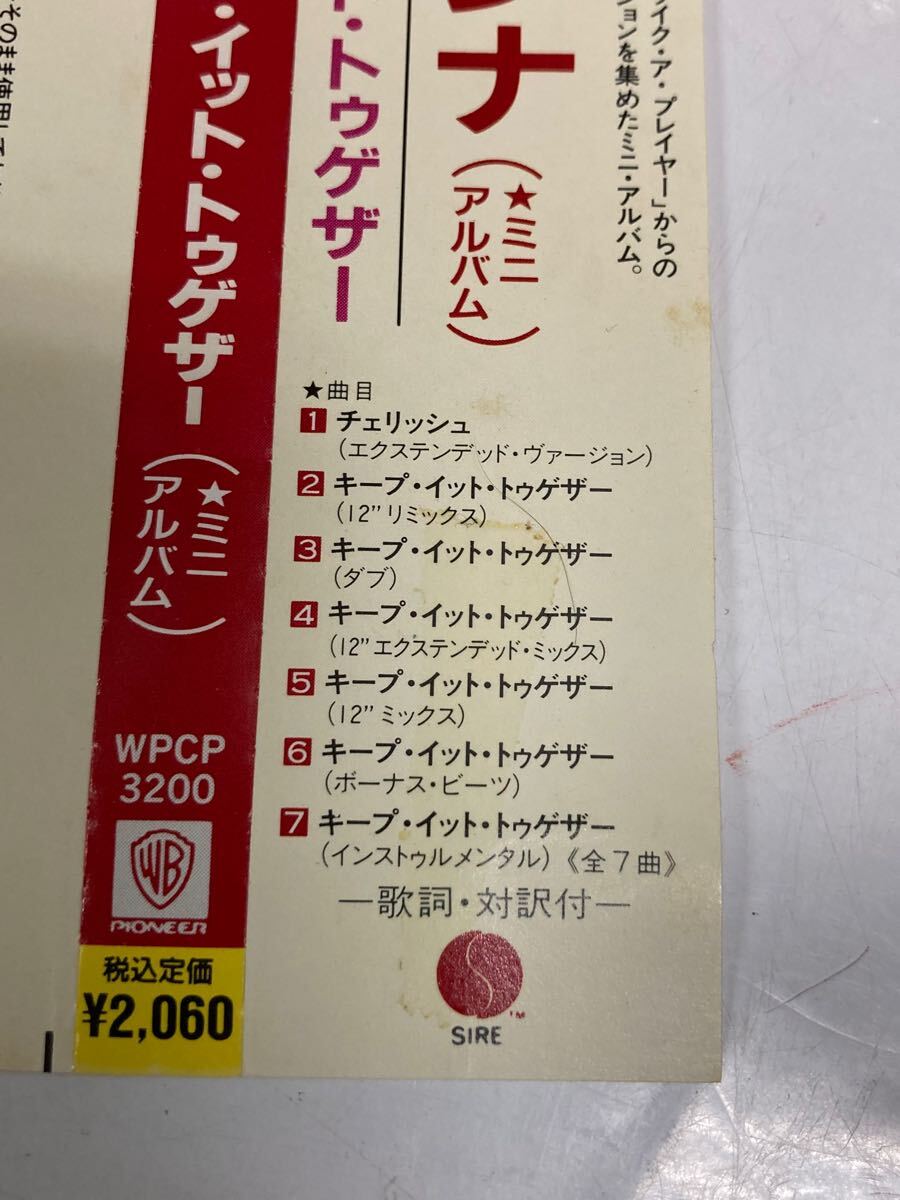 イク・ア・プレイヤー」からの
ションを集めたミニ・アルバム。
ナ
(★ミニ
アルバム)
ト・トゥゲザー
・イット・トゥゲザー
(★ミニ
アルバム)
★曲目
1 チェリッシュ
(エクステンデッド・ヴァージョン)
2 キープ・イット・トゥゲザー
(12”リミックス)
3 キープ・イット・トゥゲザー
(ダブ)
4 キープ・イット・トゥゲザー
(12”エクステンデッド・ミックス)
5 キープ・イット・トゥゲザー
(12”ミックス)
6 キープ・イット・トゥゲザー
(ボーナス・ビーツ)
7 キープ・イット・トゥゲザー
(インストゥルメンタル)《全7曲》
―歌詞・対訳付―
SIRE
WPCP
3200
WB
PIONEER
税込定価
¥2,060